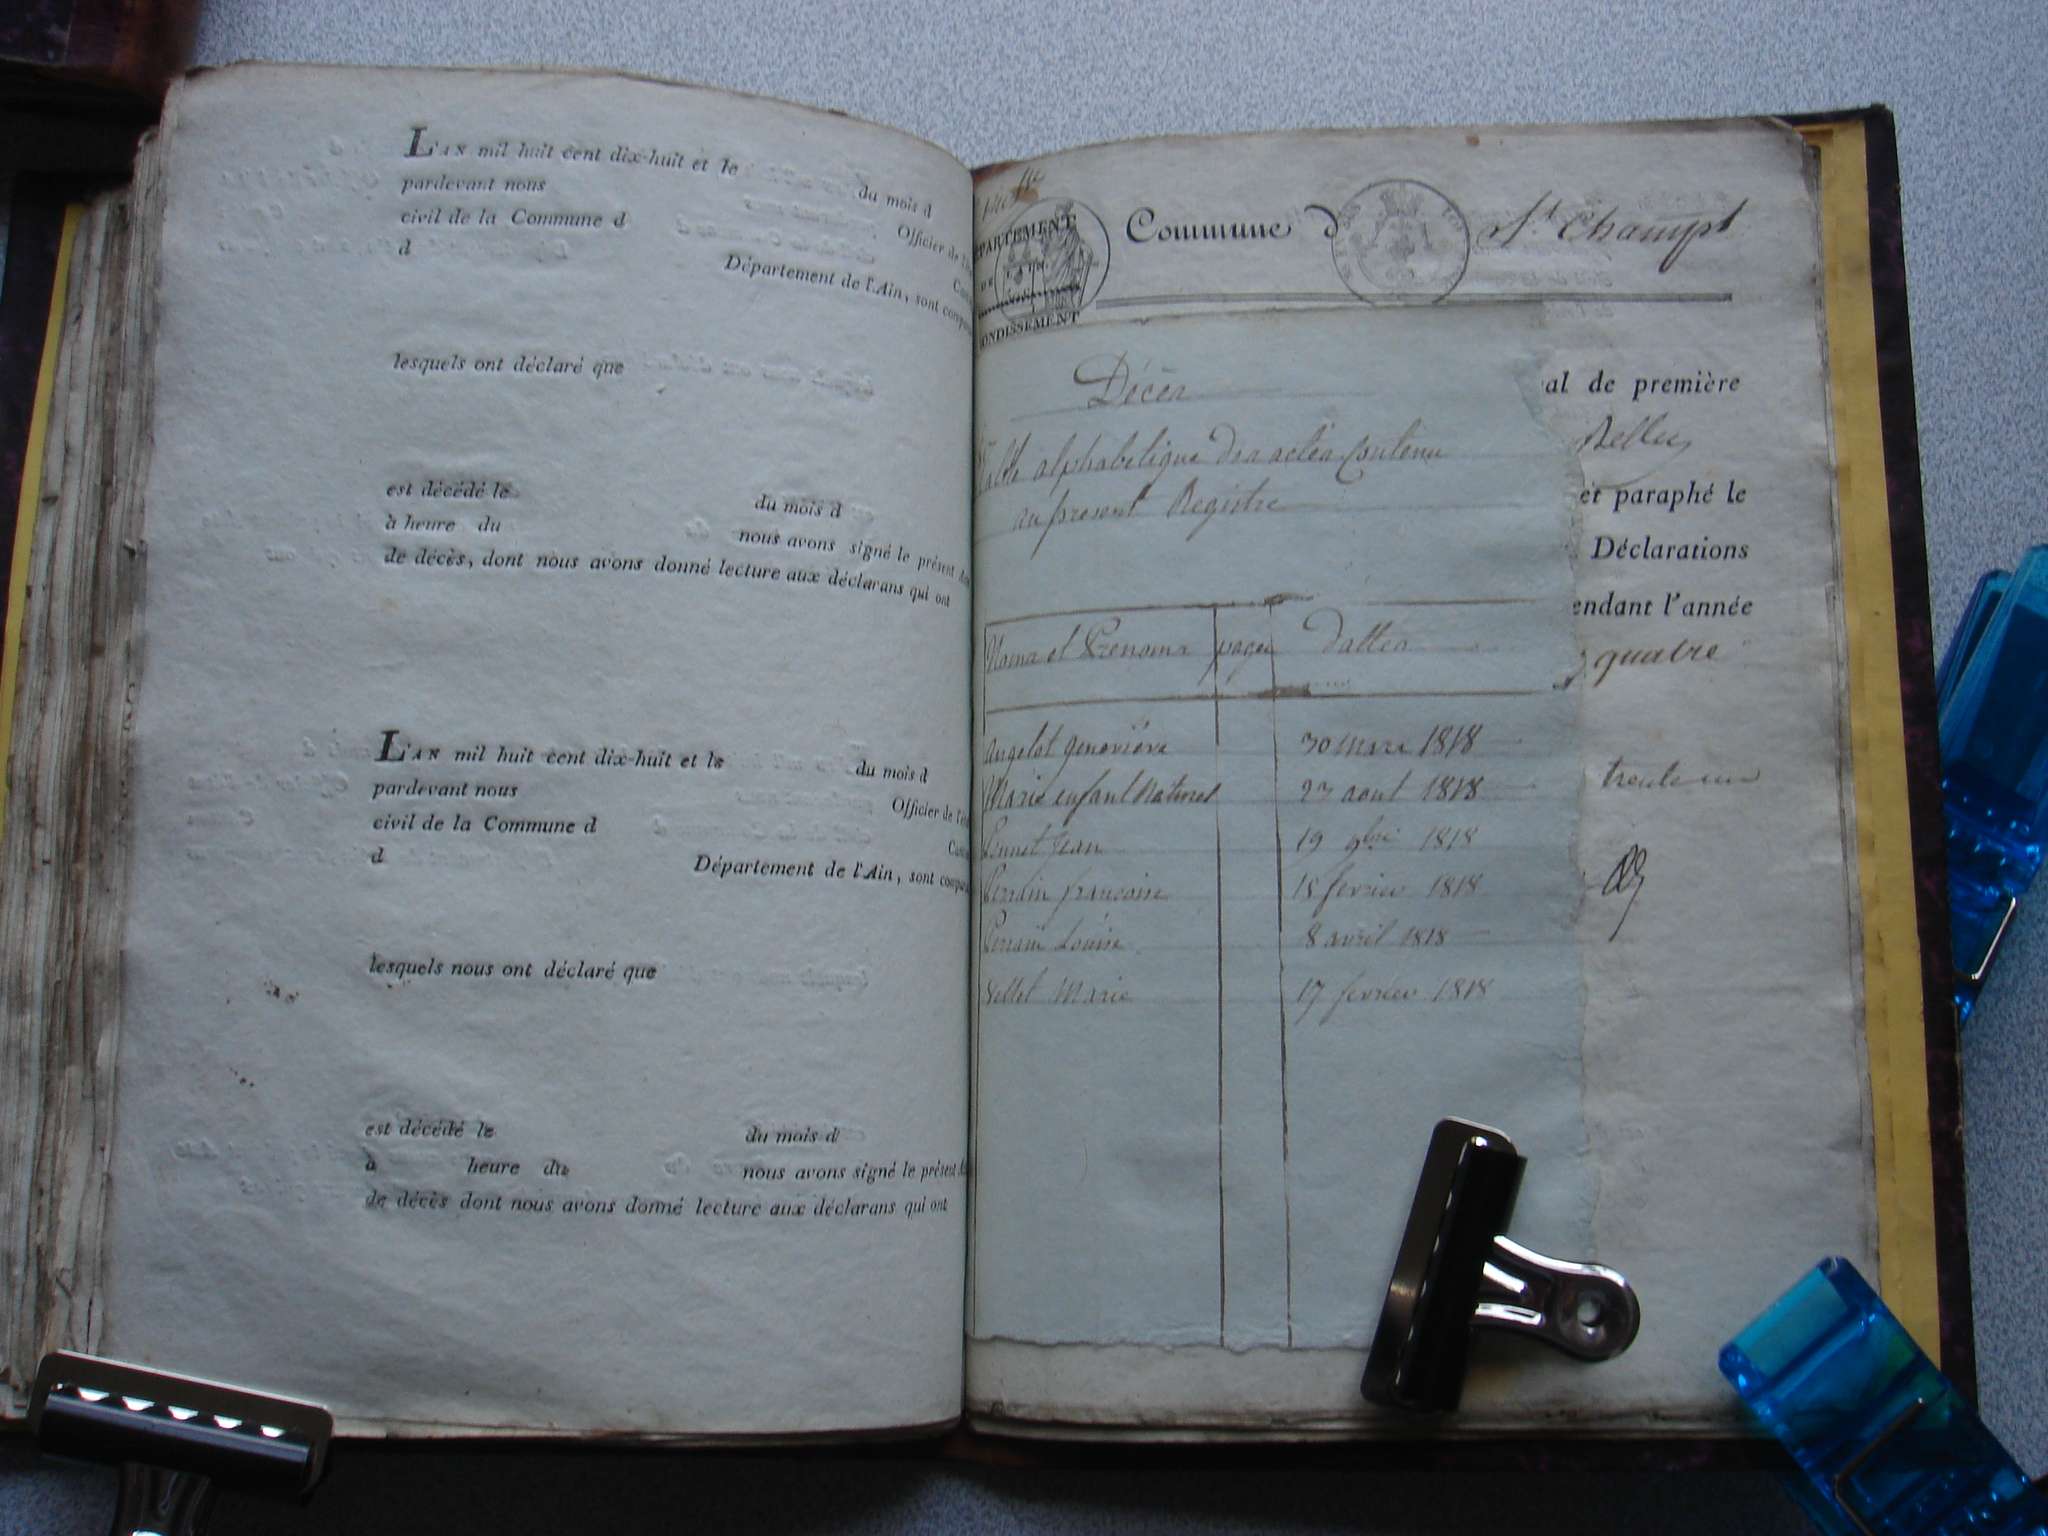 L'AN mil huit cent dix-huit et le du mois d
pardevant nous Officier de
civil de la Commune d
d Département de l'Ain, sont
lesquels ont déclaré que
est décédé le du mois d
à heure du nous avons signé le présent
de décès, dont nous avons donné lecture aux déclarans qui ont
L'AN mil huit cent dix-huit et le du mois d
pardevant nous Officier de
civil de la Commune d
d Département de l'Ain, sont
lesquels nous ont déclaré que
est décédé le du mois d
à heure du nous avons signé le présent
de décès dont nous avons donné lecture aux déclarans qui ont
PARTEMENT
DE
AIN
ONDISSEMENT
Commune d St Champt
Décès
alphabetique des actes Contenu
au present Registre
Noms et Prenoms pages dattes
angelot genevieve 30 mars 1818
Marie enfant Naturel 23 aout 1818
Jean 19 9bre 1818
francoise 18 fevrier 1818
Louise 8 avril 1818
Marie 17 fevrier 1818
al de première
Belley
et paraphé le
Déclarations
endant l'année
quatre
trente un